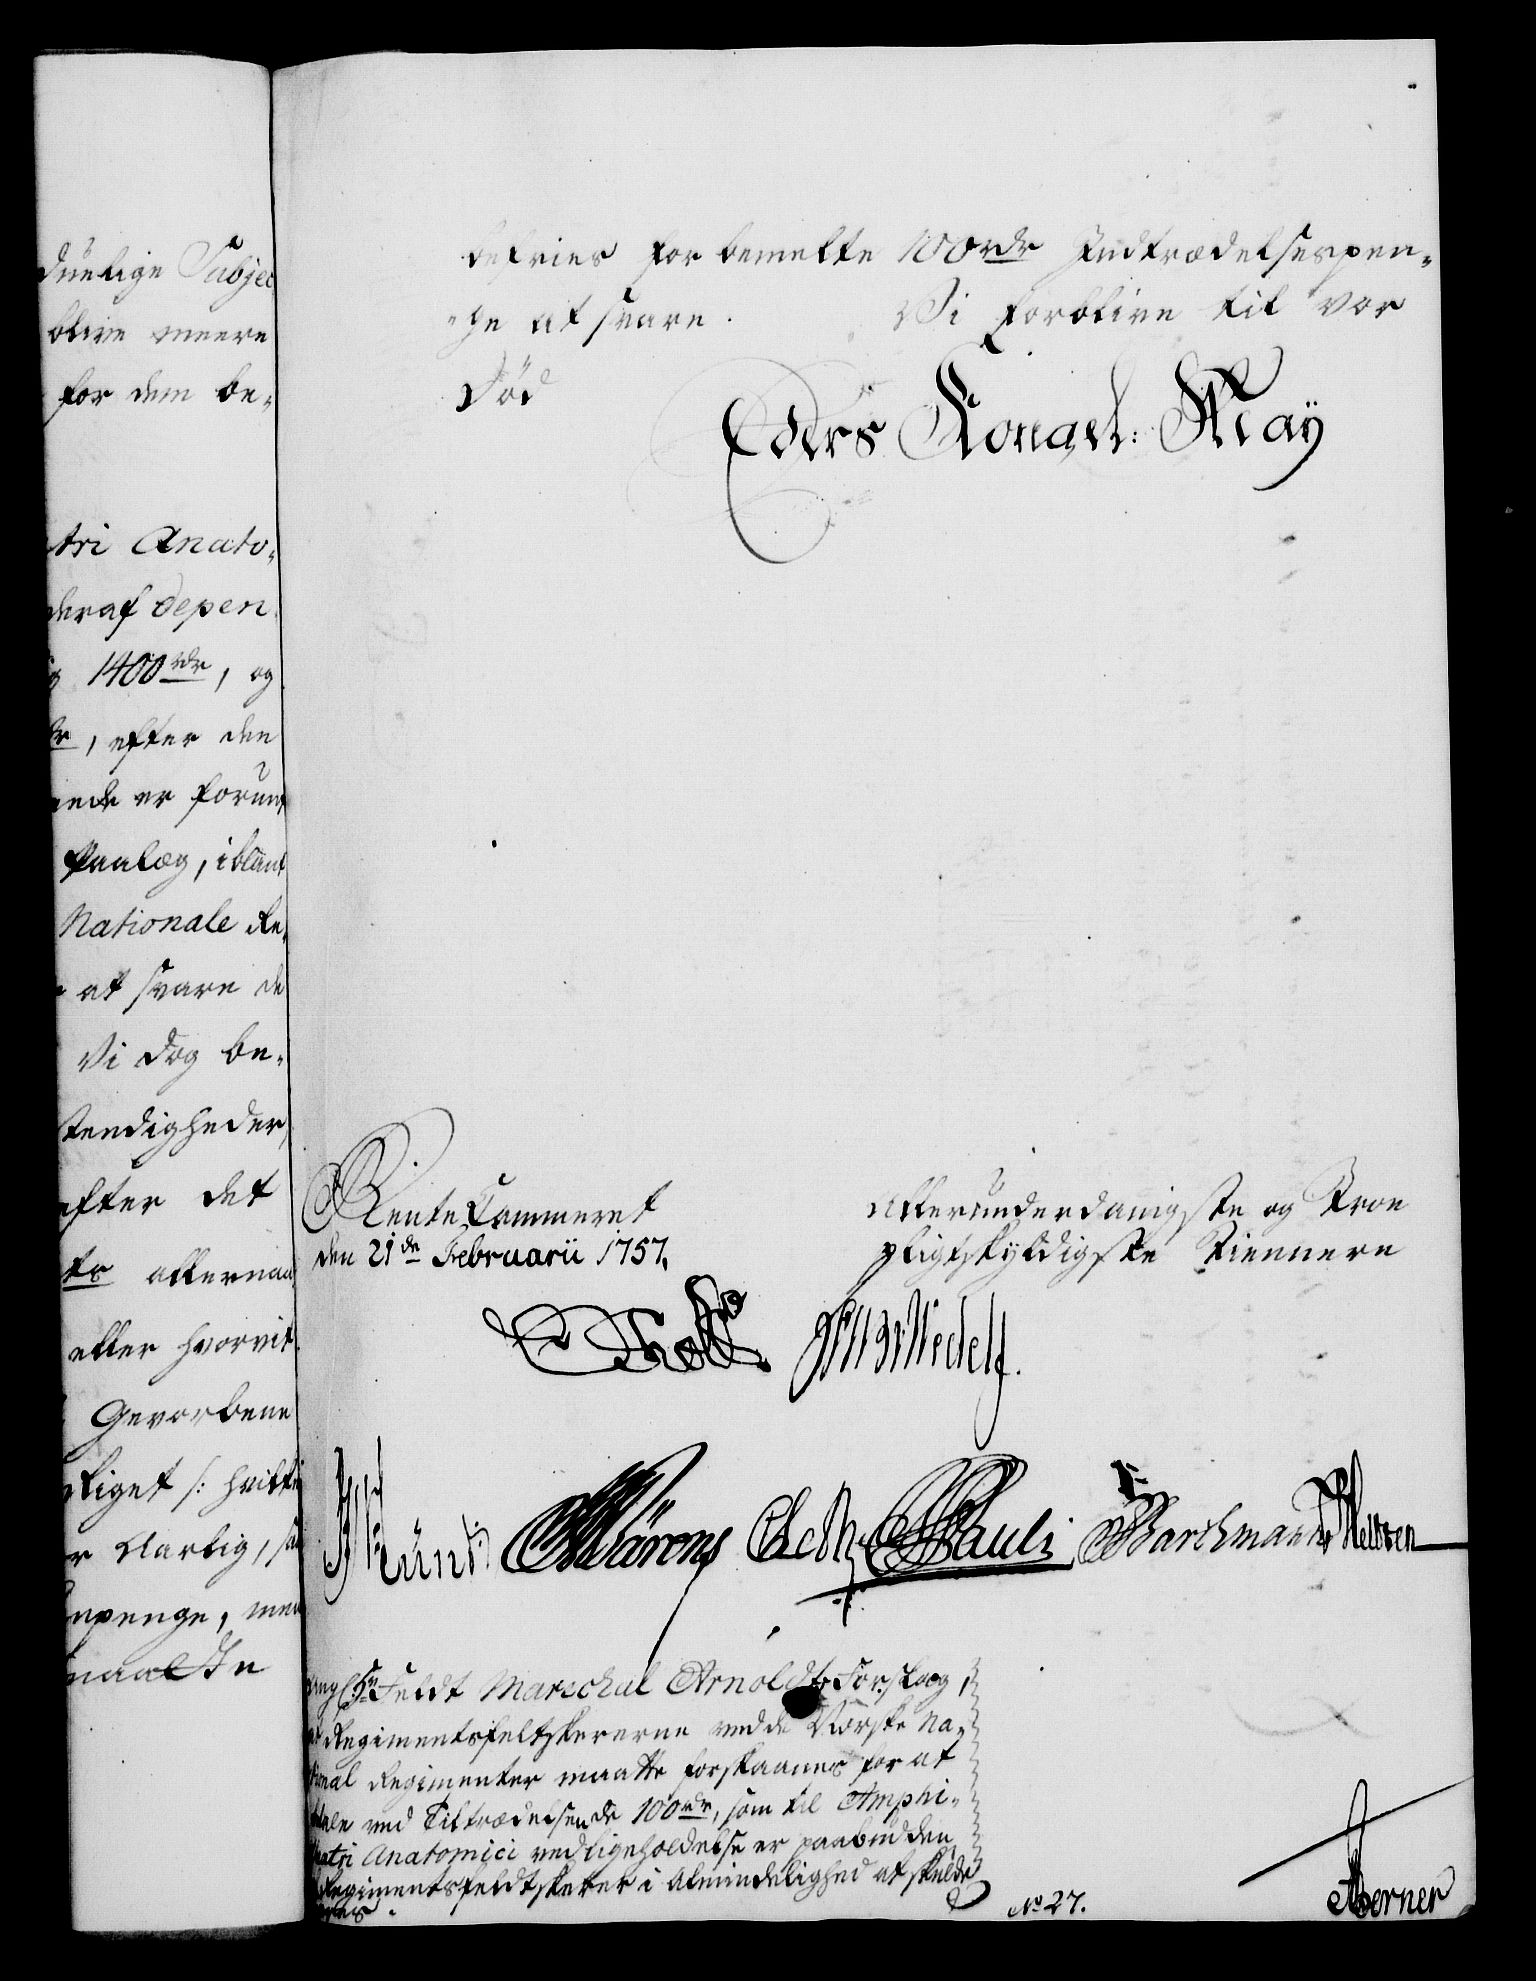 duelige Subjec
blive meere
for dem be-
tri Anato-
deraf depen
1400 rdr, og
, efter den
ende er forund
Paalæg, iblant
Nationale Re-
at svare de
Vi dog be-
stendigheder,
efter det
allernaa
eller hvorvit
Gevorbene
riget /: hvilke
r Aarlig, saa
npenge, men
maatte
befries for bemelte 100 rdr Indtrædelsespen-
-ge at svare. Vi forblive til vor
Død
Eders Kongel: May
Rente Cammeret
den 21de Februarii 1757.
Allerunderdanigste og Troe
pligtskyldigste Tiennere
Holst
Pauli Barchmann Meltzen
ang: Hr Feldt Marechal Arnoldts Forslag,
at Regimentsfeltskererne ved de Norske Na-
tional Regimenter maatte forskaanes for at
betale ved Tiltrædelsen de 100 rdr, som til Amphi-
theatri Anatomici vedligeholdelse er paabudden
Regimentsfeldtskerer i Almindelighed at skulde
svares.
No 27.
Æberner